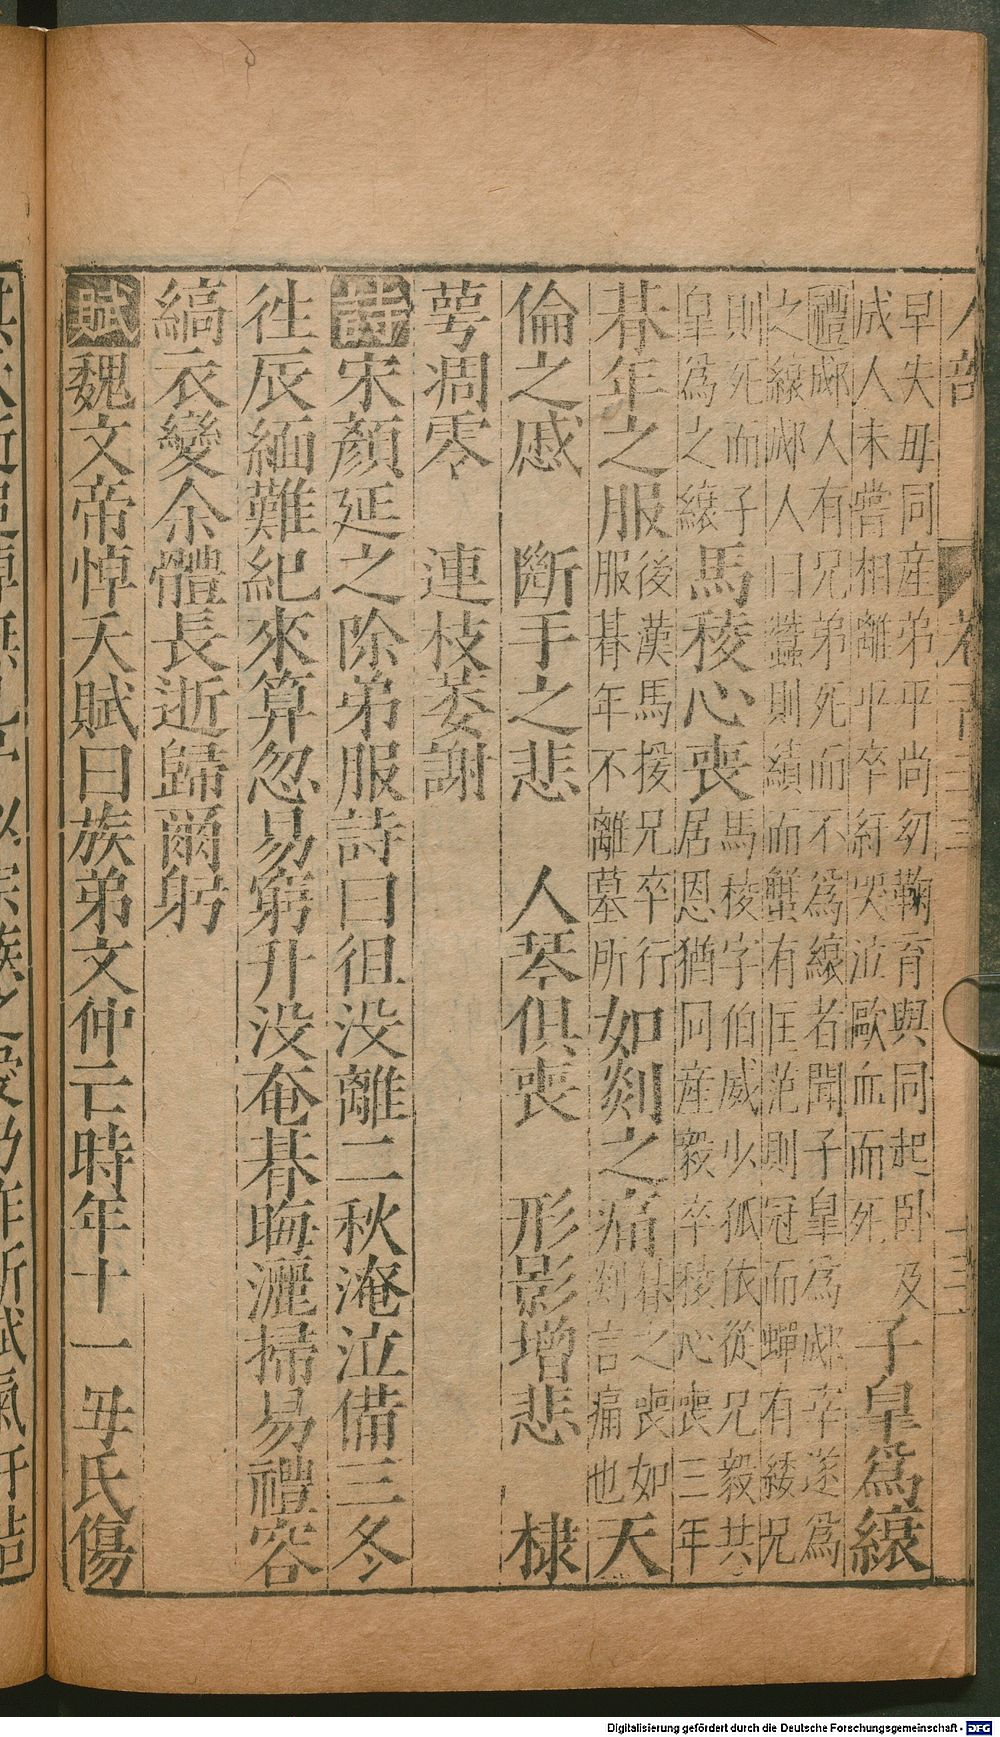 早失毋同産弟平尚幼鞠育與同起卧及
成人未嘗相離平卒䋺哭泣歐血而死
子皐為縗
禮郕人有兄弟死而不為縗者聞子皐為郕宰遂為
之縗郕人曰蠶則績而蟹有匡范則冠而蟬有緌兄
則死而子
皐為之縗
馬稜心喪
馬棱字伯威少孤依從兄毅共
居恩猶同産毅卒稜心喪三年
朞年之服
後漢馬援兄卒行
服朞年不離墓所
如剡之痛
朞之喪如
剡言痛也
天
倫之戚 斷手之悲 人琴俱喪 形影增悲 棣
萼凋零 連枝萎謝
詩宋顏延之除弟服詩曰徂没離二秋淹泣備三冬
徃辰緬難紀來算忽易窮升没奄朞晦灑掃易禮容
縞衣變余體長逝歸爾躬
賦魏文帝悼夭賦曰族弟文仲亡時年十一毋氏傷
Digitalisierung gefördert durch die Deutsche Forschungsgemeinschaft - DFG